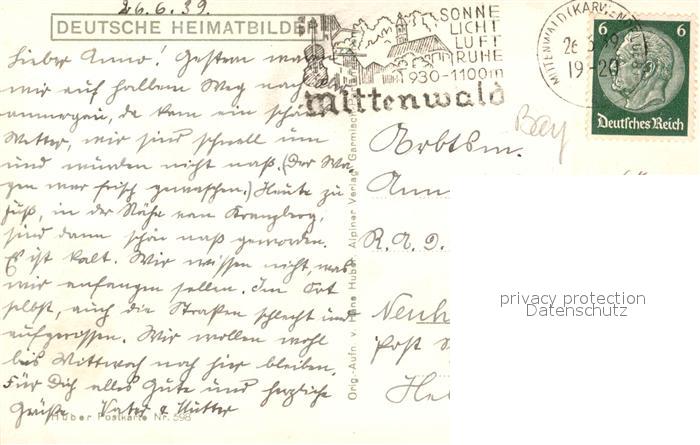 26.6.39.
DEUTSCHE HEIMATBILDER
Lieber Anno! Gestern waren
wir auf halbem Weg nach
ammergau, da kam ein schön
Wetter, wir sind schnell um
und wurden nicht naß. (Der Wa-
gen war frisch gewaschen.) Heute zu
Fuß, in der Nähe vom Kranzberg,
sind dann schön naß geworden.
Es ist kalt. Wir wissen nicht, was
wir anfangen sollen. Im Ort
selbst, auch die Straßen schlecht und
aufgerissen. Wir wollen wohl
bis Mittwoch noch hier bleiben.
Für Dich alles Gute und herzliche
Grüße Vater & Mutter
Huber Postkarte Nr. 598
Orig.-Aufn. v. Hans Huber, Alpiner Verlag, Garmisch
SONNE
LICHT
LUFT
RUHE
930-1100m
Mittenwald
MITTENWALD (KARW.
26.6.39
19-20
6 6
Deutsches Reich
Bay
Arbtsm.
Ann
R.A.D.
Neuh
Post
He
privacy protection
Datenschutz